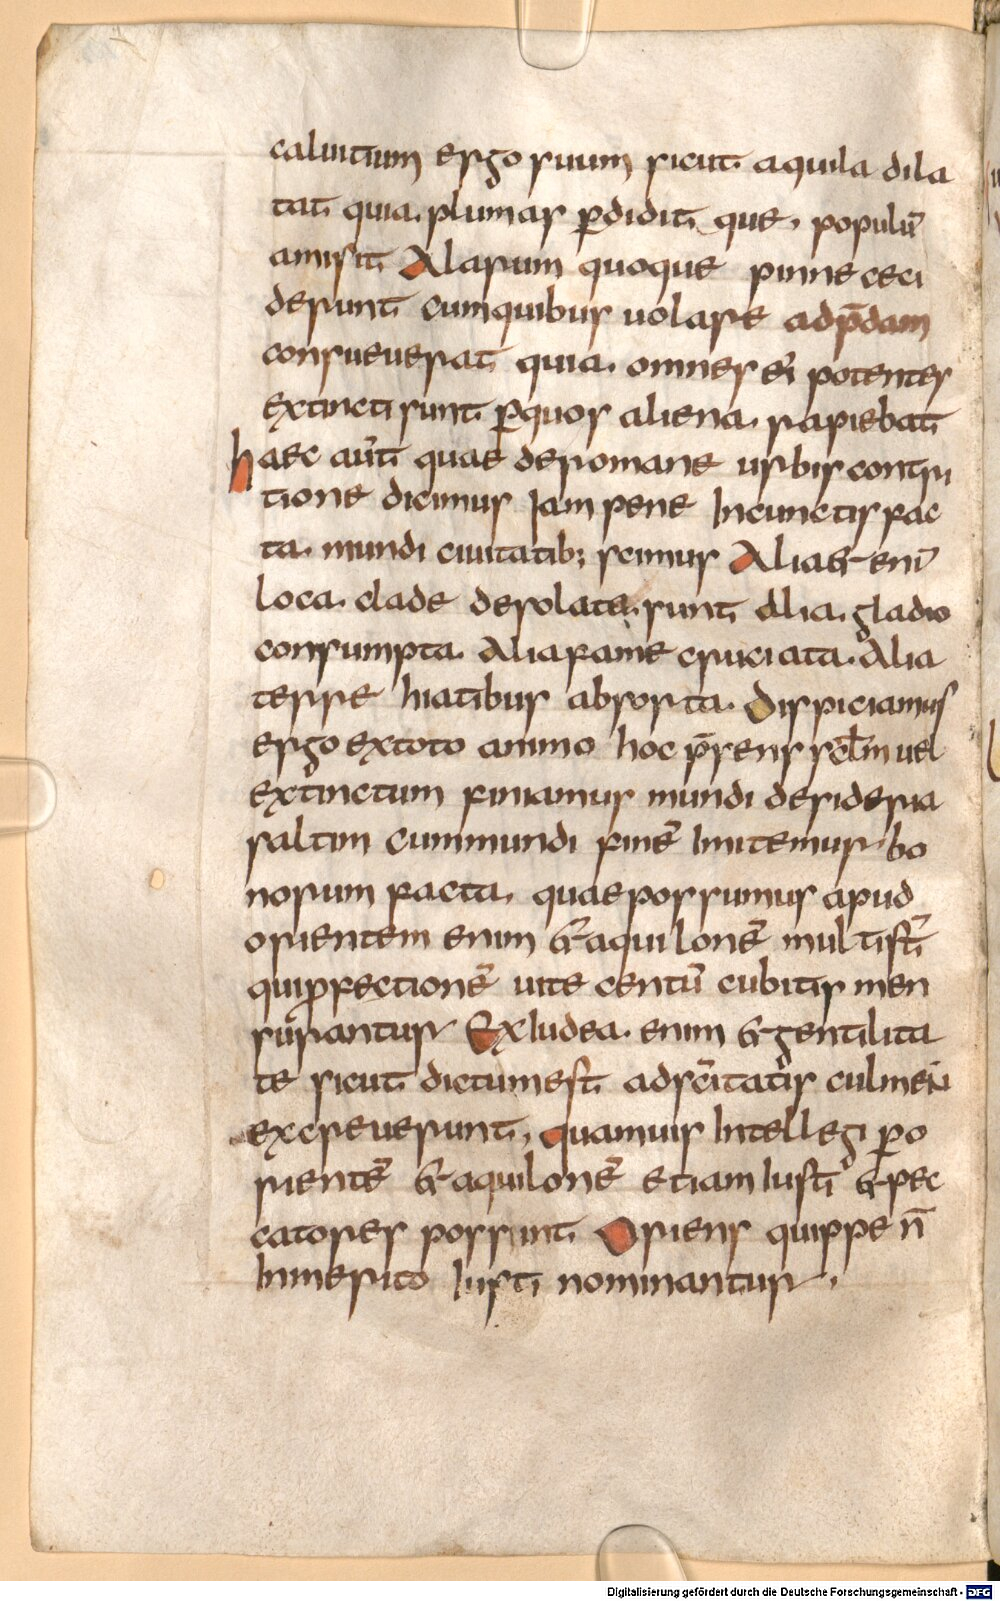 caluitium ergo suum sicut aquila dila
tat quia plumas p̄didit que, populū
amisit Alarum quoque pinne ceci
derunt cumquibus uolare adp̄dam
consueuerat quia omnes ei potentes
extincti sunt p̄quos aliena rapiebat
haec aūt quae deromane urbis contri
tione dicimus Iam pene Incunctis fac
ta mundi ciuitatib; scimus Alia & enī
loca clade desolate sunt alia gladio
consumpta Alia fame cruciata Alia
terre hiatibus absorta. Dispiciamus
ergo extoto animo hoc p̄sens sclm̄ uel
extinctum finiamus mundi desideria
saltim cummundi finē Imitemur bo
norum facta, quae possumus apud
orientem enim & aquilonē multi st̄
qui ꝓfectionē uite centū cubitis men
surantur Exludea enim & gentilita
te sicut dictum est adsc̄itatis culmen
excreuerunt, quamuis Intellegi p̄ o
rientē & aquilonē etiam Iusti & pec
catores possunt Oriens quippe n̄
Inmerito Iusti nominantur,
Digitalisierung gefördert durch die Deutsche Forschungsgemeinschaft - DFG